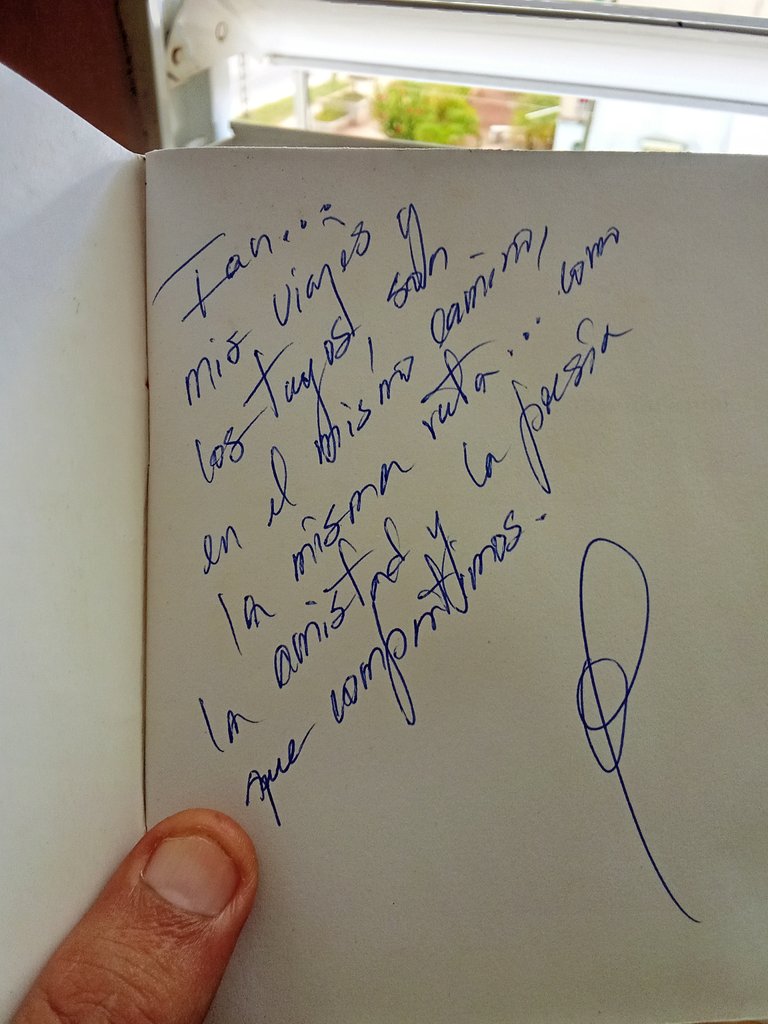 Ian...
mis viajes y
los tuyos, son
en el mismo camino,
la misma ruta... como
la amistad y la poesía
que compartimos.